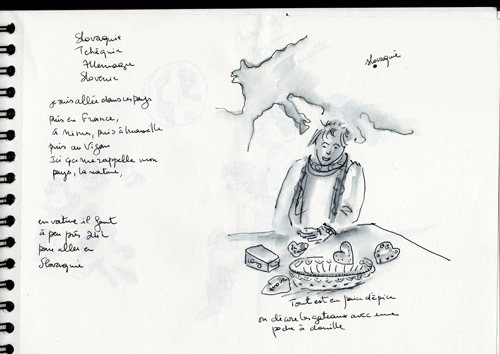 Slovaquie
Tchéquie
Allemagne
Slovénie
je suis allée dans ces pays
puis en France,
à Nîmes, puis à Marseille
puis au Vigan
Ici ça me rappelle mon
pays, la nature,
en voiture il faut
à peu près 24h
pour aller en
Slovaquie
slovaquie
Tout est en pain d'épice
on décore les gateaux avec une
poche à douille